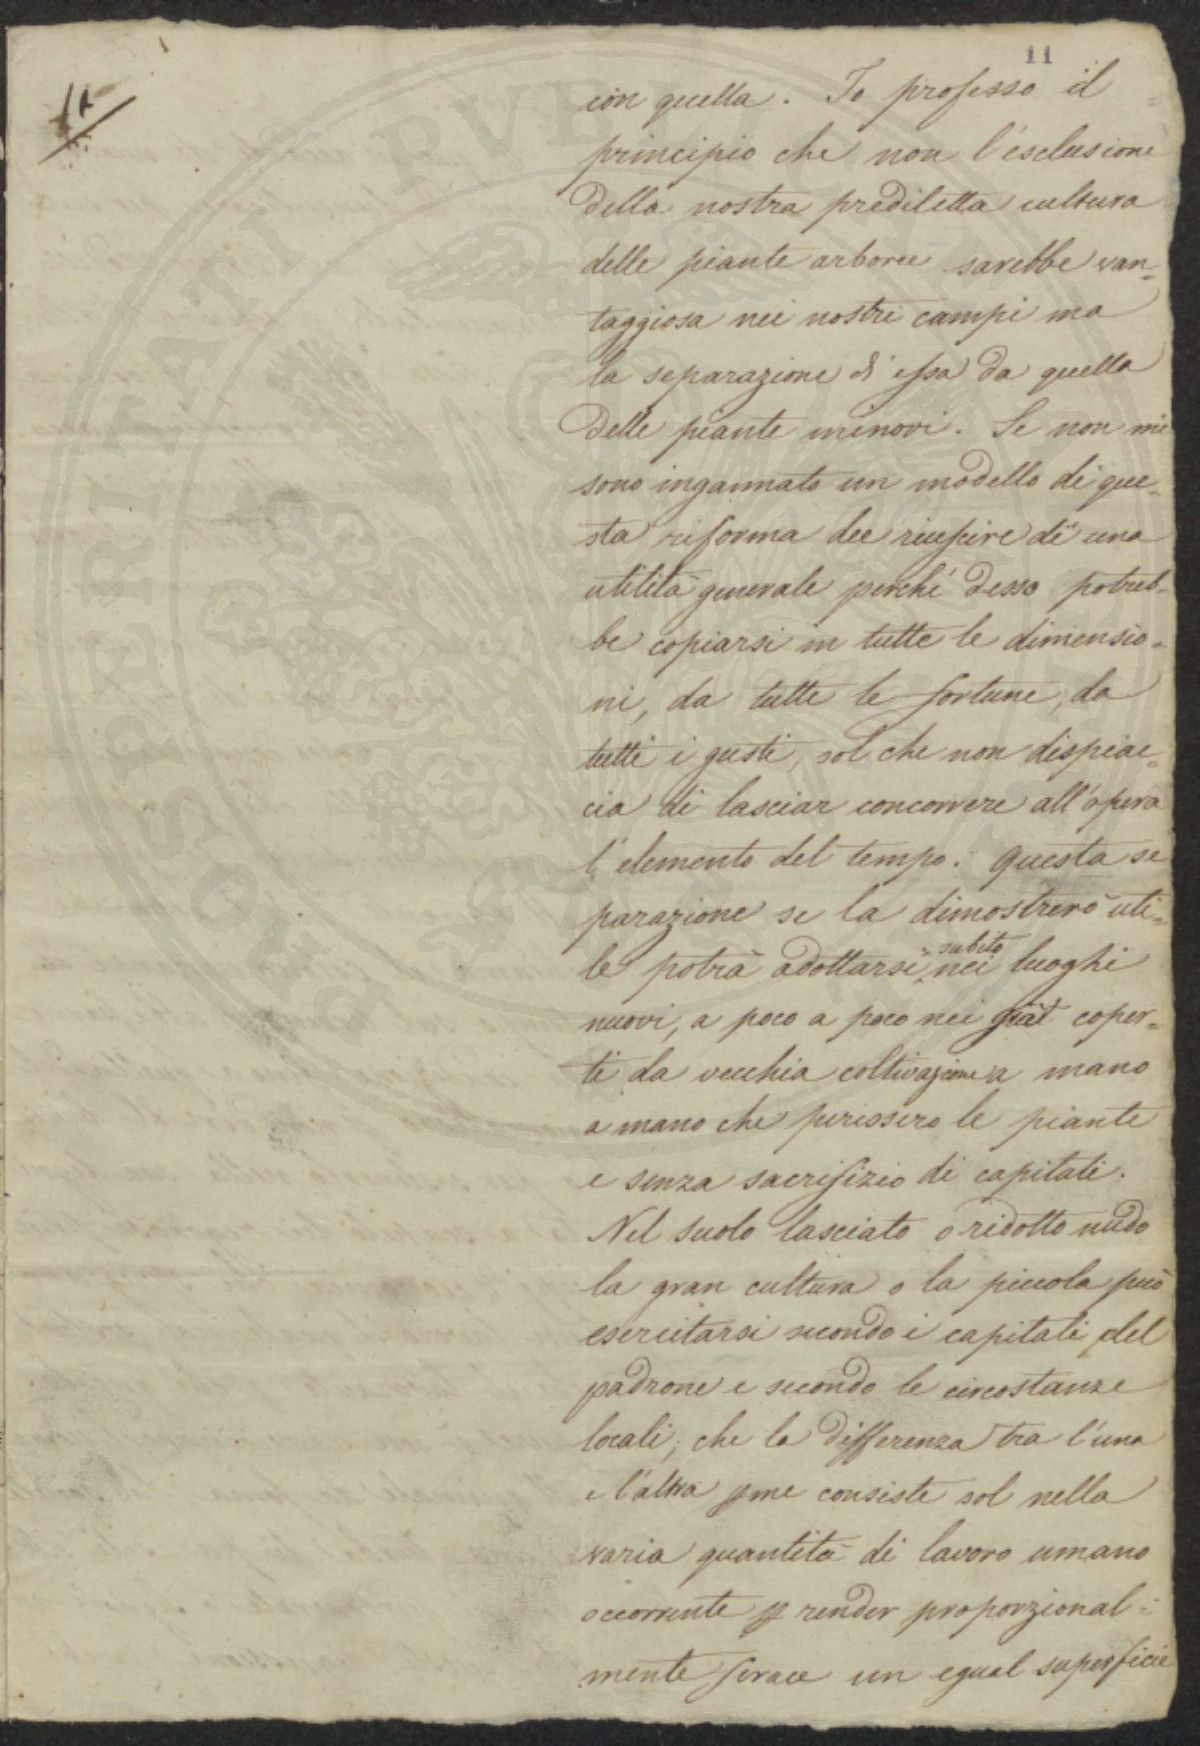 11
con quella. Io professo il
principio che non l'esclusione
della nostra prediletta cultura
delle piante arboree sarebbe van=
taggiosa nei nostri campi ma
la separazione d'essa da quella
delle piante minori. Se non mi
sono ingannato un modello di que=
sta riforma dee riuscire di una
utilità generale perché desso potreb=
be copiarsi in tutte le dimensio=
ni, da tutte le fortune, da
tutti i gusti, sol che non dispiac=
cia di lasciar concorrere all'opera
l'elemento del tempo. Questa se
parazione se la dimostrerò uti=
le potrà adottarsi subito nei luoghi
nuovi, a poco a poco nei già coper=
ti da vecchia coltivazione a mano
a mano che perissero le piante
e senza sacrifizio di capitali.
Nel suolo lasciato o ridotto nudo
la gran cultura o la piccola può
esercitarsi secondo i capitali del
padrone e secondo le circostanze
locali; che la differenza tra l'una
e l'altra pme consiste sol nella
varia quantità di lavoro umano
occorrente p render proporzional=
mente ferace un egual superficie
PVBLICAE
PROSPERITATI